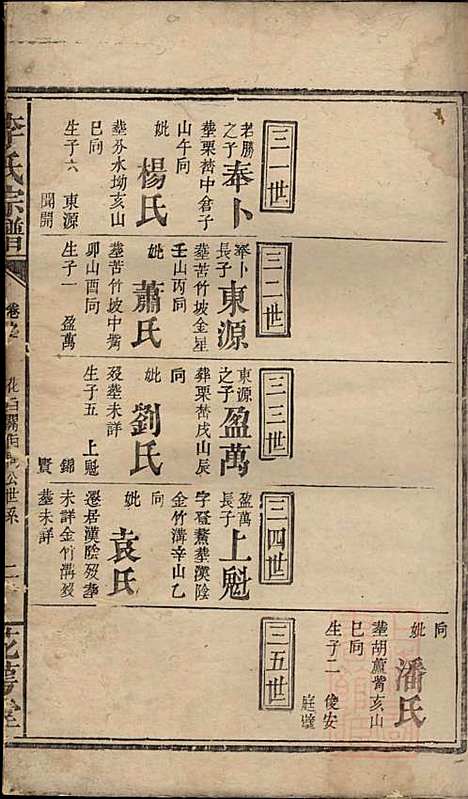 三一世
若勝之子
奉卜
葬栗嵆中倉子
山午向
妣
楊氏
葬芬水坳亥山
巳向
生子六
東源
開開
三二世
奉卜長子
東源
葬苦竹坡金星
壬山丙向
妣
蕭氏
葬苦竹坡中嘴
卯山酉向
生子一
盈萬
三三世
東源之子
盈萬
葬栗嵆戌山辰
向
妣
劉氏
歿葬未詳
生子五
上魁
錦
賢
三四世
盈萬長子
上魁
字登鰲葬漢陰
金竹溝辛山乙
向
妣
袁氏
遷居漢陰歿葬
未詳金竹溝歿
葬未詳
三五世
向
妣
潘氏
葬胡蘆嘴亥山
巳向
生子二
俊安
庭璧
李氏宗譜
世系
二
花萼堂